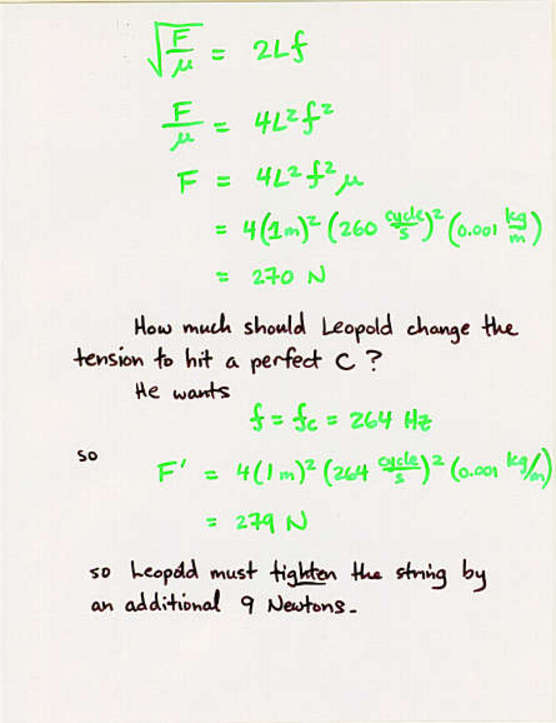 √(F/μ) = 2Lf
F/μ = 4L²f²
F = 4L²f²μ
= 4(1m)² (260 cycle/s)² (0.001 kg/m)
= 270 N
How much should Leopold change the
tension to hit a perfect C?
He wants
f = fc = 264 Hz
so
F' = 4(1m)² (264 cycle/s)² (0.001 kg/m)
= 279 N
so Leopold must tighten the string by
an additional 9 Newtons.